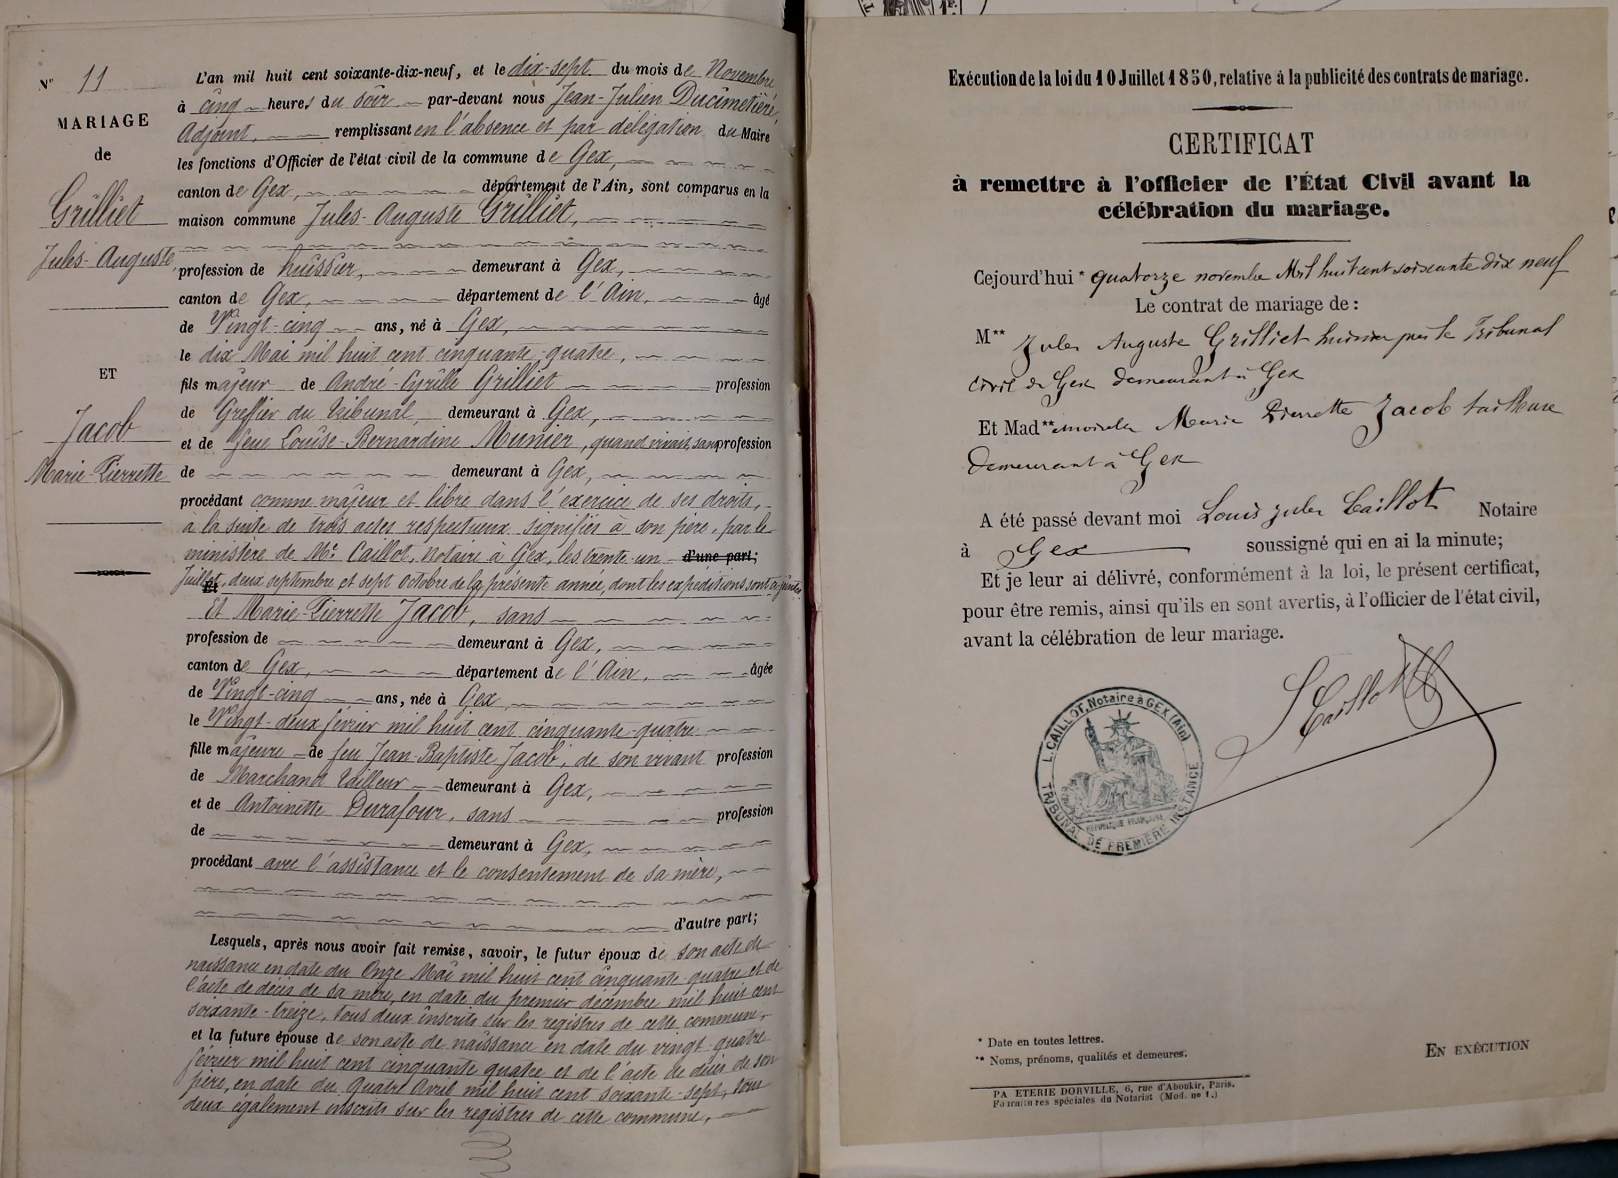 N° 11
MARIAGE
de
Grilliet
Jules-Auguste,
ET
Jacob
Marie-Pierrette
L'an mil huit cent soixante-dix-neuf, et le dix-sept du mois de Novembre
à cinq heures du soir par-devant nous Jean-Julien Ducimetière,
Adjoint, remplissant en l'absence et par délégation du Maire
les fonctions d'Officier de l'état civil de la commune de Gex,
canton de Gex, département de l'Ain, sont comparus en la
maison commune Jules-Auguste Grilliet,
profession de huissier, demeurant à Gex,
canton de Gex, département de l'Ain, âgé
de Vingt-cinq ans, né à Gex,
le dix Mai mil huit cent cinquante-quatre,
fils majeur de André-Cyrille Grilliet profession
de Greffier du tribunal, demeurant à Gex,
et de feue Louise-Bernardine Munier, quand vivait, sans profession
de demeurant à Gex,
procédant comme majeur et libre dans l'exercice de ses droits,
à la suite de trois actes respectueux signifiés à son père, par le
ministère de Me Caillot, notaire à Gex, les trente-un d'une part;
Juillet, deux septembre et sept Octobre de la présente année, dont les expéditions sont ci-jointes
Et
Et Marie-Pierrette Jacob, sans
profession de demeurant à Gex,
canton de Gex, département de l'Ain, âgée
de Vingt-cinq ans, née à Gex,
le Vingt-deux février mil huit cent cinquante-quatre
fille majeure de feu Jean-Baptiste Jacob, de son vivant profession
de Marchand tailleur demeurant à Gex,
et de Antoinette Durafour, sans profession
de demeurant à Gex,
procédant avec l'assistance et le consentement de sa mère,
d'autre part;
Lesquels, après nous avoir fait remise, savoir, le futur époux de son acte de
naissance en date du Onze Mai mil huit cent cinquante-quatre et de
l'acte de décès de sa mère, en date du premier décembre mil huit cent
soixante-treize, tous deux inscrits sur les registres de cette commune,
et la future épouse de son acte de naissance en date du vingt-quatre
février mil huit cent cinquante quatre et de l'acte de décès de son
père, en date du quatre Avril mil huit cent soixante-sept, tous
deux également inscrits sur les registres de cette commune,
Exécution de la loi du 10 Juillet 1850, relative à la publicité des contrats de mariage.
CERTIFICAT
à remettre à l'officier de l'État Civil avant la
célébration du mariage.
Cejourd'hui * quatorze novembre Mil huit cent soixante dix neuf
Le contrat de mariage de :
M** Jules Auguste Grilliet huissier près le Tribunal
civil de Gex demeurant à Gex
Et Mad**emoiselle Marie Pierrette Jacob tailleuse
demeurant à Gex
A été passé devant moi Louis Jules Caillot Notaire
à Gex soussigné qui en ai la minute;
Et je leur ai délivré, conformément à la loi, le présent certificat,
pour être remis, ainsi qu'ils en sont avertis, à l'officier de l'état civil,
avant la célébration de leur mariage.
L. CAILLOT, Notaire à GEX (Ain)
TRIBUNAL DE PREMIÈRE INSTANCE
RÉPUBLIQUE FRANÇAISE
* Date en toutes lettres.
** Noms, prénoms, qualités et demeures.
EN EXÉCUTION
PA ETERIE DORVILLE, 6, rue d'Aboukir, Paris.
Fournitures spéciales du Notariat (Mod. no 1.)